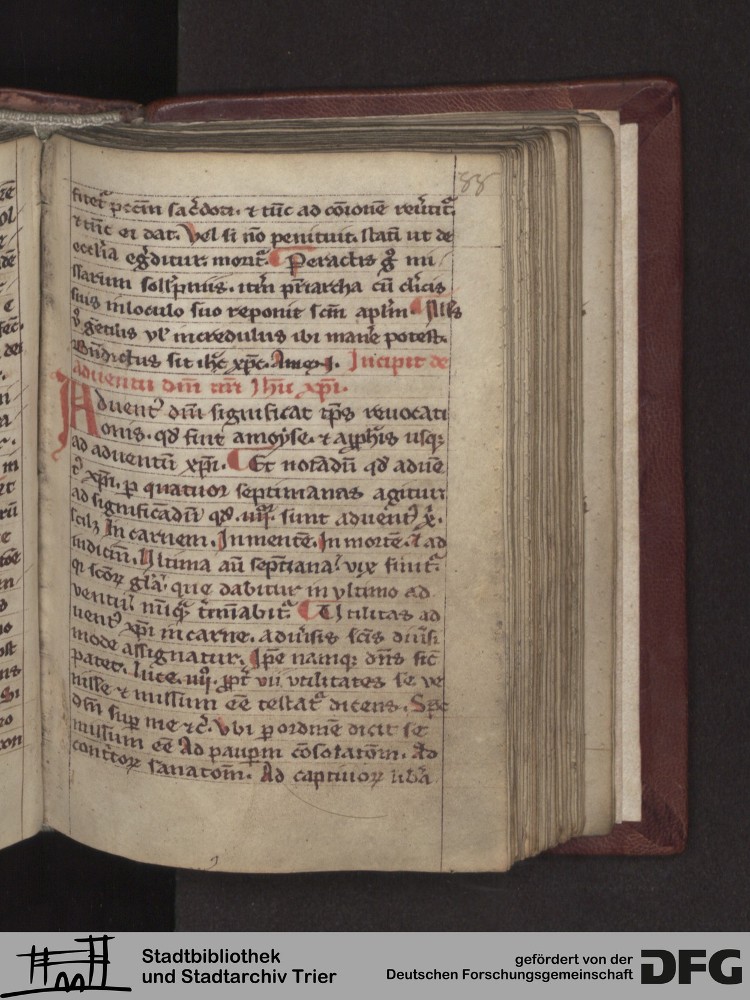 88
fitet᷑ pctm̄ sac̄doti. ⁊ tūc ad cōionē reūtit᷑
⁊ tūc ei dat᷑. Vel si nō penituit. statī ut de
ecclīa eḡditur. morit᷑. Peractis gͦ mi
ssarum sollēpniis. itm̄ pr̄iarcha cū cl̄icis
suis in loculo suo reponit scm̄ apl̄m
gētilis vl̓ incredulus ibi manē potest.
Bn̄dictus sit ihc̄ xpc̄. Amen. Incipit de
aduentu dm̄ nr̄i Jhū xp̄i.
Aduentꝰ dm̄ significat tp̄s reuocati
onis. qd̄ fuit a moyse. ⁊ a ꝓphis usqꝫ
ad aduentū xp̄i. Et notādū qd̄ adue
tꝰ xp̄i. ꝑ quatuor septimanas agitur
ad significādū qd̄ .iiijͦʳ. sunt aduentꝰ x̄.
scilꝫ In carnem. In mente. In morte. ⁊ ad
iudiciū. Vltima aū septīana vix finit᷑.
qꝛ scōꝝ gl̄a. que dabitur in vltimo ad
ventu nūqꝫ t̄minabit᷑. Vtilitas ad
uentꝰ xp̄i in carne. a diu̓sis scīs diu̓si
mode assignatur. Ipe namqꝫ dn̄s sic̄
patet. luce. iiij. ꝓpt̓ vii vtilitates se ve
nisse ⁊ missum eē testat᷑ dicens. Spc̄
dn̄i suꝑ me ⁊c̄. Vbi ꝑ ordinē dicit se
missum eē Ad pauꝑm cōsolatōm̄. Ad
cont̓toꝝ sanatōm̄. Ad captiuoꝝ lib̓a
Stadtbibliothek
und Stadtarchiv Trier
gefördert von der
Deutschen Forschungsgemeinschaft
DFG